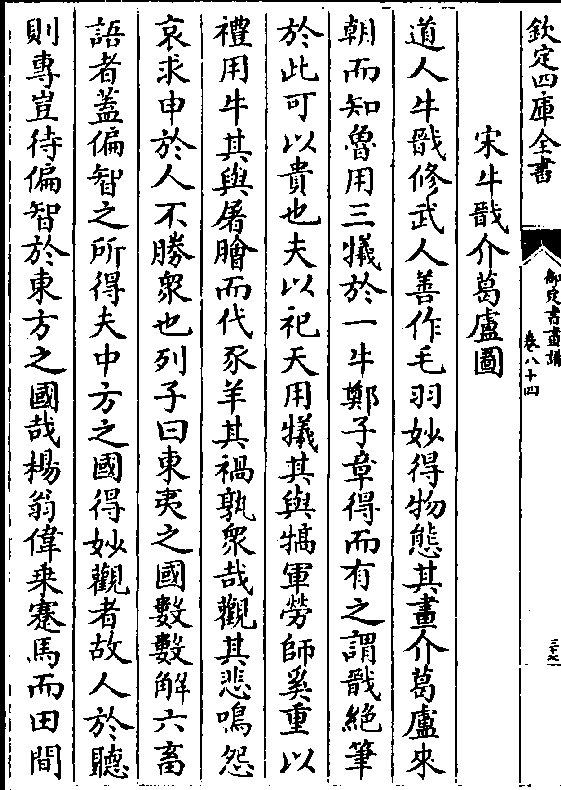 欽定四庫全書
御定書畫譜
卷八十四
三十七
宋牛戩介葛盧圖
道人牛戩修武人善作毛羽妙得物態其畫介葛盧來
朝而知魯用三犧於一牛鄭子章得而有之謂戩絶筆
於此可以貴也夫以祀天用犧其與犒軍勞師奚重以
禮用牛其與屠膾而代豕羊其禍孰衆哉觀其悲鳴怨
哀求申於人不勝衆也列子曰東夷之國數數解六畜
語者蓋偏智之所得夫中方之國得妙觀者故人於聽
則專豈待偏智於東方之國哉楊翁偉乗蹇馬而田間